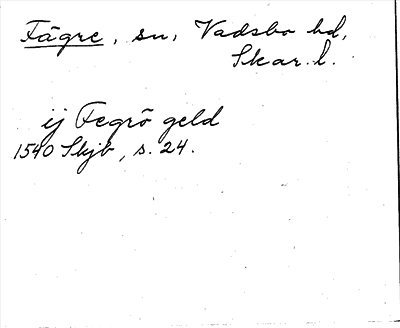 Fägre, sn, Vadsbo hd,
Skar. l.
ij Fegrö geld
1540 Skjb, s. 24.